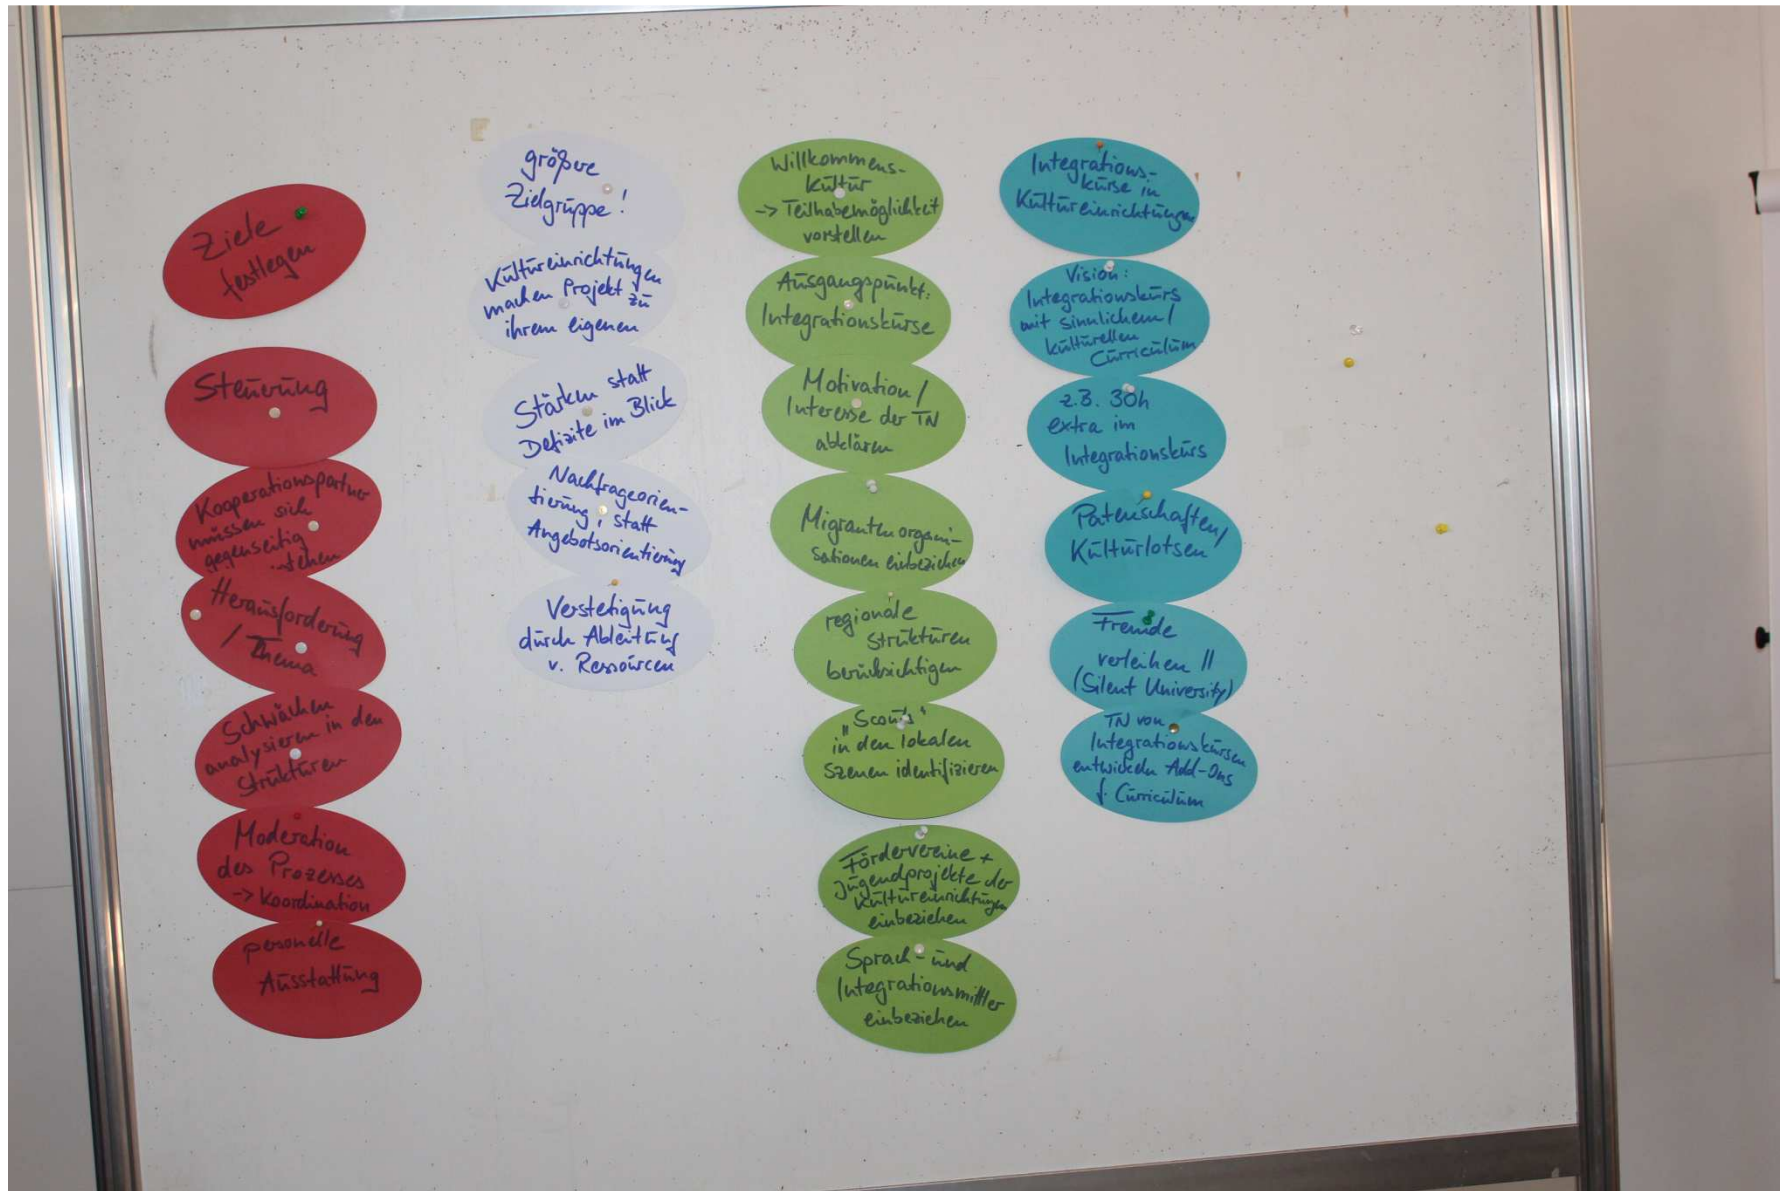 Ziele
festlegen
Steuerung
Kooperationspartner
müssen sich
gegenseitig
Herausforderung
/ Thema
Schwächen
analysieren in den
Strukturen
Moderation
des Prozesses
-> Koordination
personelle
Ausstattung
größere
Zielgruppe!
Kultureinrichtungen
machen Projekt zu
ihrem eigenen
Stärken statt
Defizite im Blick
Nachfrageorien-
tierung, statt
Angebotsorientierung
Verstetigung
durch Ableitung
v. Ressourcen
Willkommens-
kultur
-> Teilhabemöglichkeit
vorstellen
Ausgangspunkt:
Integrationskurse
Motivation/
Interesse der TN
abklären
Migrantenorgani-
sationen einbeziehen
regionale
Strukturen
berücksichtigen
"Scouts"
in den lokalen
Szenen identifizieren
Fördervereine +
Jugendprojekte der
Kultureinrichtungen
einbeziehen
Sprach- und
Integrationsmittler
einbeziehen
Integrations-
kurse in
Kultureinrichtungen
Vision:
Integrationskurs
mit sinnlichem/
kulturellen
Curriculum
z.B. 30h
extra im
Integrationskurs
Patenschaften/
Kulturlotsen
Fremde
verleihen II
(Silent University)
TN von
Integrationskursen
entwickeln Add-Ons
f. Curriculum